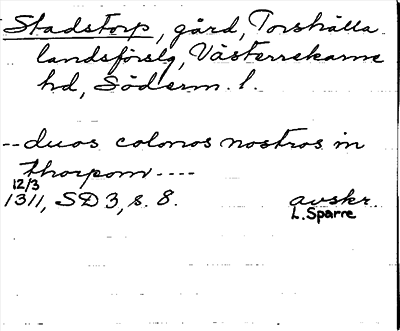 Stadstorp, gård, Torshälla
landsförslg, Västerrekarne
hd, Söderm. l.
-- duos colonos nostros in
thorpom ----
12/3
1311, SD 3, s. 8. avskr.
L. Sparre